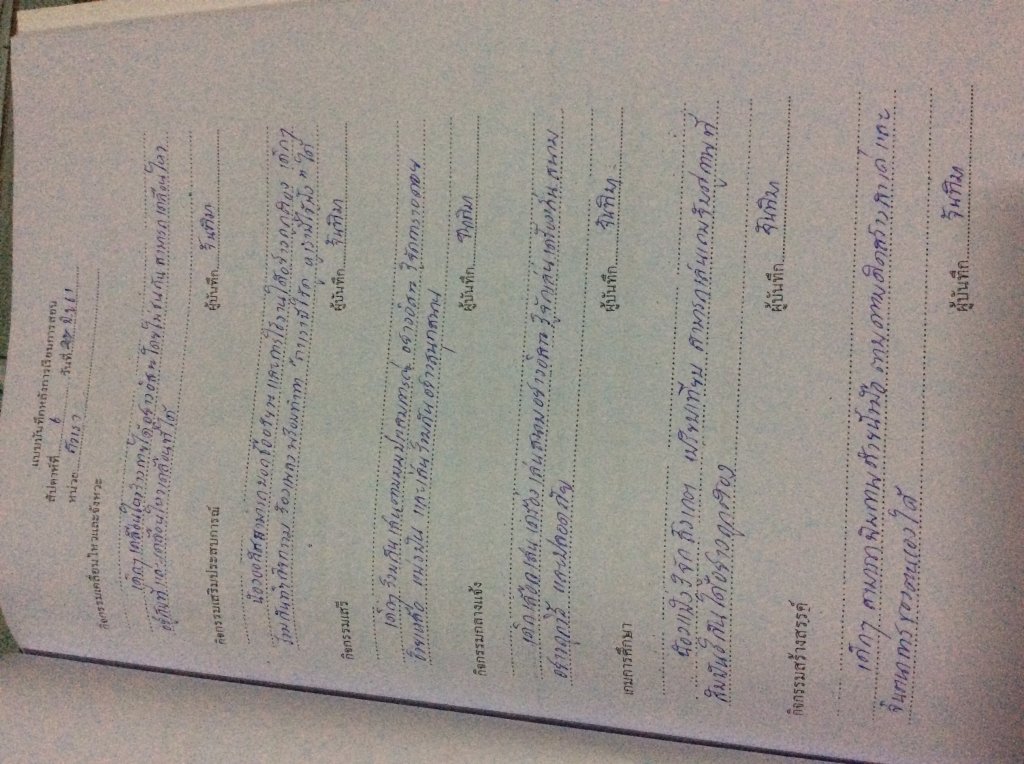 แบบบันทึกหลังการเรียนการสอน
สัปดาห์ที่ 6 วันที่
หน่วย ตัวเรา
กิจกรรมเคลื่อนไหวและจังหวะ
เด็กๆ เคลื่อนไหวร่างกายได้อย่างอิสระโดยไม่ชนกัน สามารถเคลื่อนไหว
อยู่กับที่และเคลื่อนไหวเคลื่อนที่ได้
ผู้บันทึก
กิจกรรมเสริมประสบการณ์
น้อง สามารถบอกชื่ออวัยวะและการใช้งานได้อย่างถูกต้อง เด็กๆ
ร่วมกันทำกิจกรรม ร้องเพลงพร้อมทำท่า ได้
ผู้บันทึก
กิจกรรมเสรี
เด็กๆ ร่วมกันเล่นตามมุมประสบการณ์ อย่างอิสระ รู้จักการรอคอย
ช่วยเหลือ แบ่งปัน และเล่นร่วมกันอย่างสนุกสนาน
ผู้บันทึก
กิจกรรมกลางแจ้ง
เด็กเลือกเล่นเครื่องเล่นสนามอย่างอิสระ รู้จักเล่นเครื่องเล่นสนาม
อย่างถูกวิธี และปลอดภัย
ผู้บันทึก
เกมการศึกษา
น้อง รู้จักสังเกต เปรียบเทียบ สามารถเล่นเกมจับคู่ภาพที่
สัมพันธ์กันได้อย่างถูกต้อง
ผู้บันทึก
กิจกรรมสร้างสรรค์
เด็กๆ สามารถพิมพ์ภาพด้วยนิ้วมือ ตามความคิดสร้างสรรค์และ
จินตนาการของตนเองได้
ผู้บันทึก